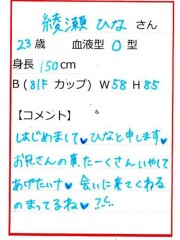 綾瀬 ひな さん
23歳 血液型 O型
身長 150cm
B(81Fカップ) W58 H85
【コメント】
はじめまして♥ひなと申します♥
お兄さんの事、たーくさんいやして
あげたいナ♥会いに来てくれる
のまってるね♥